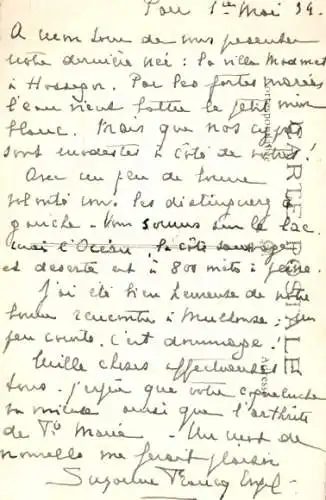 Pau 1er Mai 34.
A mon tour de vous présenter
notre dernière née : la villa
à Hossegor. Par les fortes marées
l'eau vient battre le petit mur
blanc. Mais que nos
sont modestes à côté de vôtres!
Avec un peu de bonne
volonté vous les distinguerez à
gauche - Nous sommes sur le lac
l'Océan, la côte sauvage
et déserte est à 800 mèts à peine.
J'ai été bien heureuse de notre
bonne rencontre à Mulhouse, un
peu courte. C'est dommage!
Mille choses affectueuses à
tous. J'espère que votre coqueluche
va mieux ainsi que l'arthrite
de Marie - Un mot de
nouvelle me ferait plaisir
Suzanne
CARTE POSTALE
Correspondance
Adresse